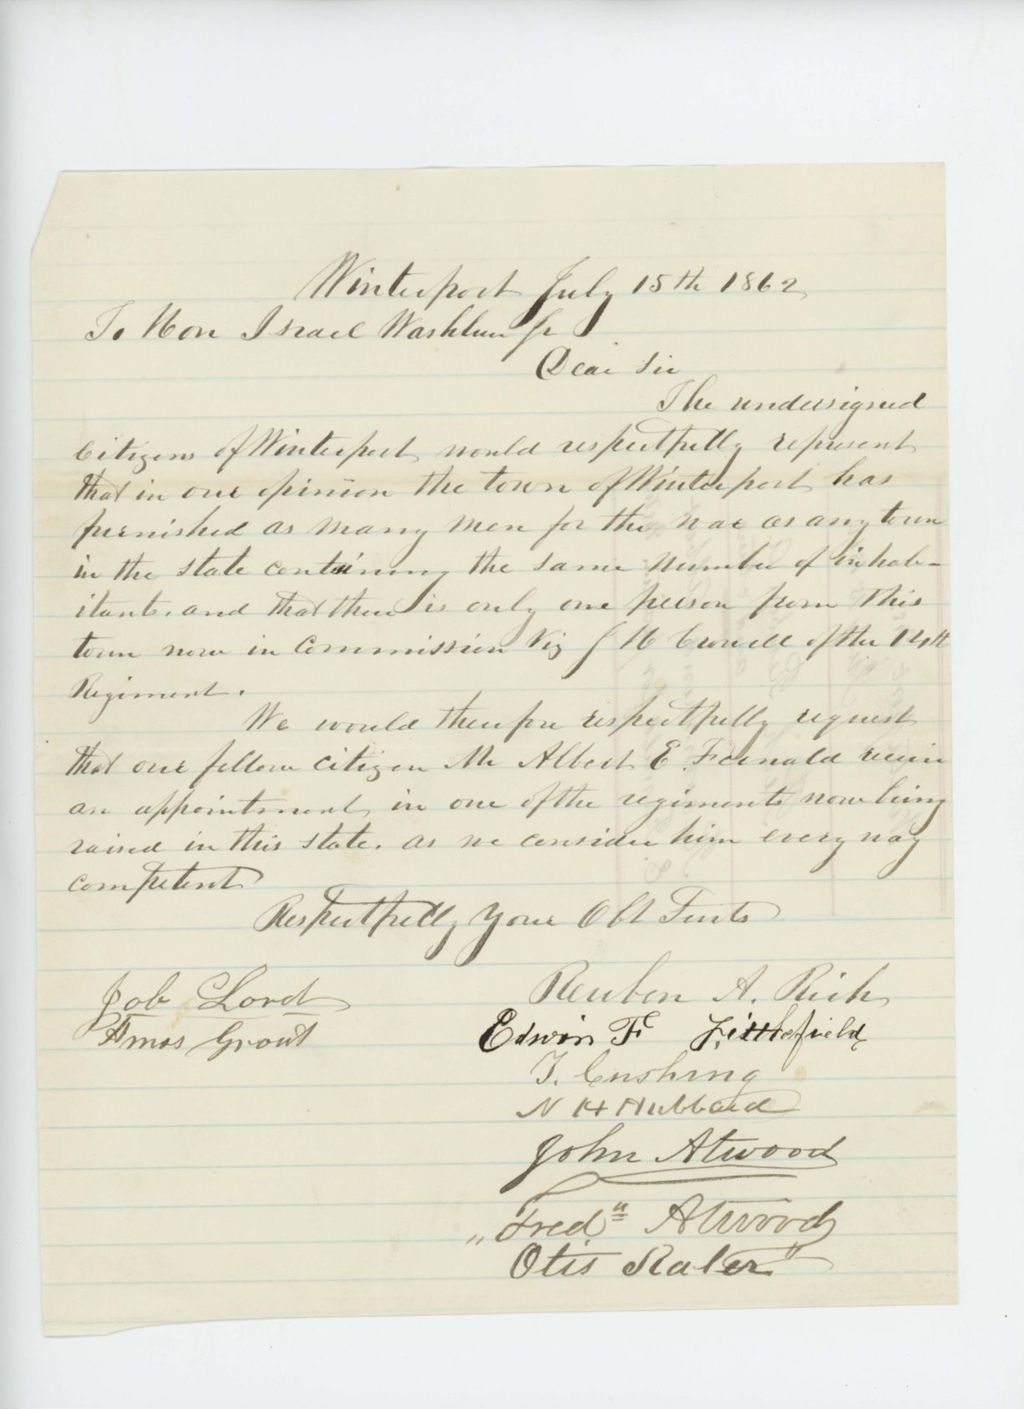 Winterport July 15th 1862
To Hon Israel Washburn Jr
Dear Sir
The undersigned
Citizens of Winterport would respectfully represent
that in our opinion the town of Winterport has
furnished as many men for the war as any town
in the state containing the same number of inhab-
itants. and that there is only one person from this
town now in Commission Viz J H Crowell of the 14th
Regiment.
We would therefore respectfully request
that our fellow citizen Mr Albert E. Fernald receive
an appointment in one of the regiments now being
raised in this state. as we consider him every way
competent
Respectfully Your Obt
Job Lord
Amos Grout
Reuben A. Rich
Edwin F Littlefield
T. Cushing
N H Hubbard
John Atwood
"Fred" Atwood
Otis